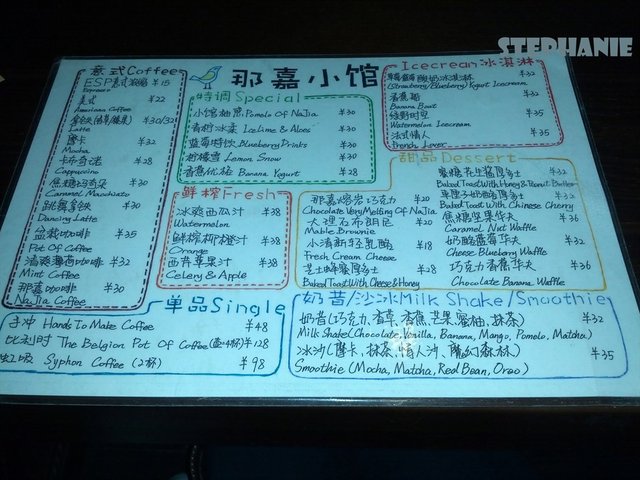 STEPHANIE
那嘉小馆
意式Coffee
ESP意式浓缩 ¥15
Espresso
美式 ¥22
American Coffee
拿铁 ¥30/32
Latte
摩卡
Mocha
卡布奇诺 ¥28
Cappuccino
焦糖玛奇朵 ¥30
Caramel Macchiato
跳舞拿铁 ¥30
Dancing Latte
盆栽咖啡 ¥35
Pot Of Coffee
清凉薄荷咖啡 ¥30
Mint Coffee
那嘉咖啡 ¥30
NaJia Coffee
特调Special
小馆柚思 Pomelo Of NaJia ¥30
青柑冰柔 Ice Lime & Aloe ¥30
蓝莓特饮 Blueberry Drinks ¥30
柠檬雪 Lemon Snow ¥30
香蕉优格 Banana Yogurt ¥28
鲜榨Fresh
冰爽西瓜汁 ¥38
Watermelon
鲜榨柳橙汁 ¥38
Orange
西芹苹果汁 ¥38
Celery & Apple
Icecrean冰淇淋
草莓/蓝莓酸奶冰淇淋 ¥32
(Strawberry/Blueberry) Yogurt Icecream
香蕉船 ¥32
Banana Boat
绿野时空 ¥35
Watermelon Icecream
法式情人 ¥35
French Lover
甜品Dessert
那嘉熔岩巧克力 ¥20
Chocolate Very Melting Of NaJia
大理石布朗尼 ¥20
Mable Brownie
小清新轻乳酪 ¥18
Fresh Cream Cheese
芝士蜂蜜厚多士 ¥28
Baked Toast With Cheese & Honey
蜜糖花生酱厚多士 ¥32
Baked Toast With Honey & Peanut Butter
Baked Toast With Chinese Cherry
焦糖坚果华夫 ¥36
Caramel Nut Waffle
奶酪蓝莓华夫 ¥32
Cheese Blueberry Waffle
巧克力香蕉华夫 ¥36
Chocolate Banana Waffle
单品Single
手冲 Hands To Make Coffee ¥48
比利时 The Belgion Pot Of Coffee ¥128
虹吸 Syphon Coffee (2杯) ¥98
奶昔/沙冰Milk Shake/Smoothie
奶昔(巧克力,香草,香蕉,芒果,蜜柚,抹茶) ¥32
Milk Shake(Chocolate,Vanilla, Banana, Mango, Pomelo, Matcha)
冰沙(摩卡,抹茶,情人沙,魔幻森林) ¥35
Smoothie (Mocha, Matcha, Red Bean, Orao)